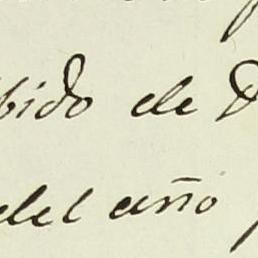 bido de D
del año